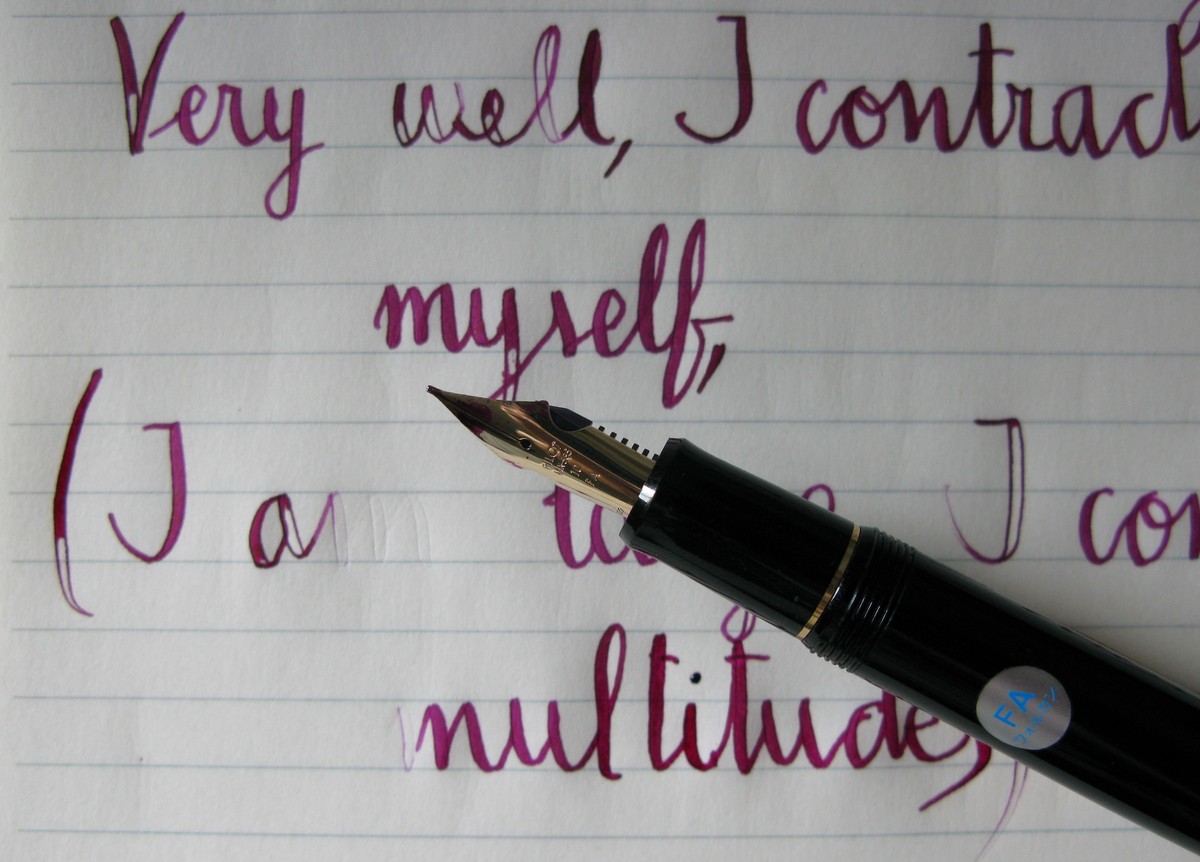 Very well, I contrad
myself,
(I am I con
multitudes
FA
フォルカン